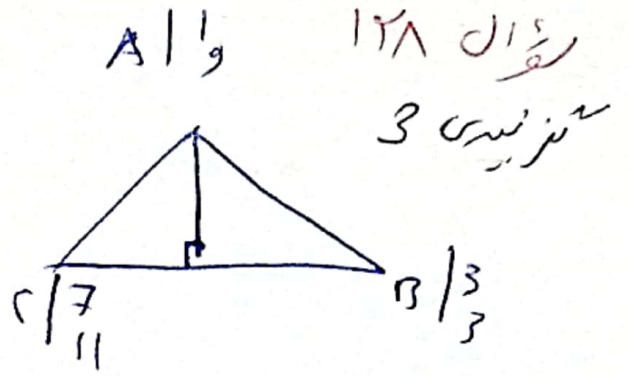 سؤال ۱۲۸
گزینه‌ی 3
A | 1
9
C | 7
11
B | 3
3